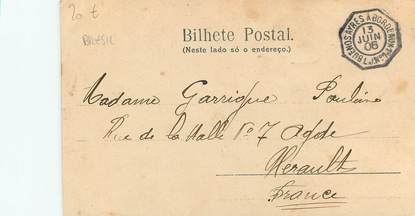 20 t
BRESIL
Bilhete Postal.
(Neste lado só o endereço.)
BUENOS AYRES A BORDEAUX
13
JUIN
06
Madame Garrigue Pauline
Rue de la Halle No 7 Agde
Herault
France